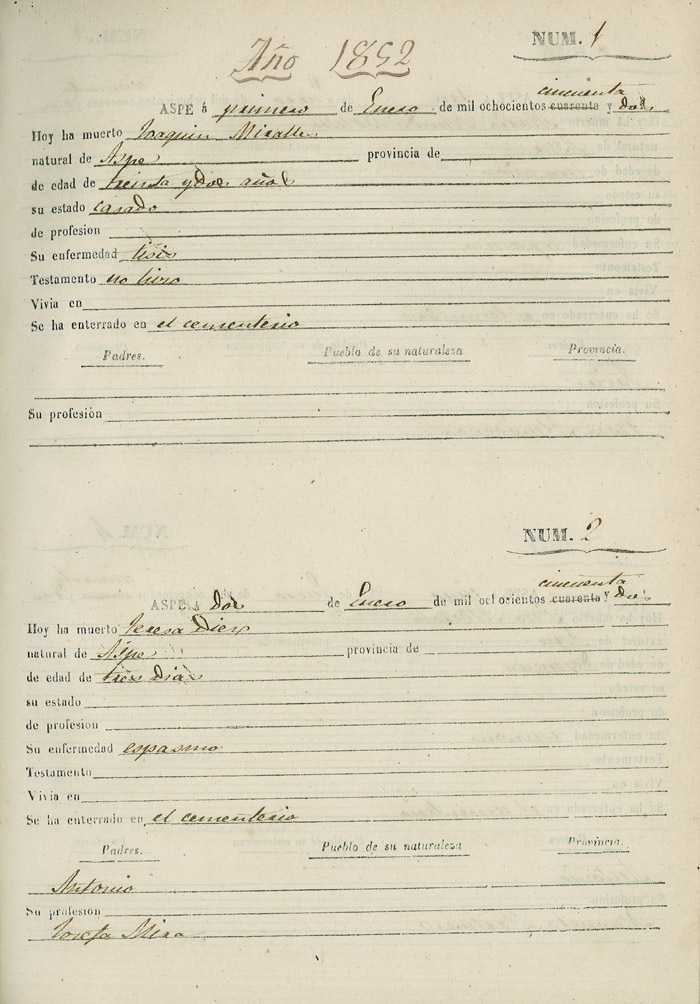 Año 1852
NUM. 1
cincuenta
ASPE á primero de Enero de mil ochocientos cuarenta y dos
Hoy ha muerto Joaquin Miralles
natural de Aspe provincia de
de edad de treinta y dos años
su estado casado
de profesion
Su enfermedad tisis
Testamento no hizo
Vivia en
Se ha enterrado en el cementerio
Padres. Pueblo de su naturaleza Provincia.
Su profesión
NUM. 2
cincuenta
ASPE á dos de Enero de mil ochocientos cuarenta y dos
Hoy ha muerto Teresa Diez
natural de Aspe provincia de
de edad de tres dias
su estado
de profesion
Su enfermedad espasmo
Testamento
Vivia en
Se ha enterrado en el cementerio
Padres. Pueblo de su naturaleza Provincia.
Antonio
Su profesion
Josefa Mira